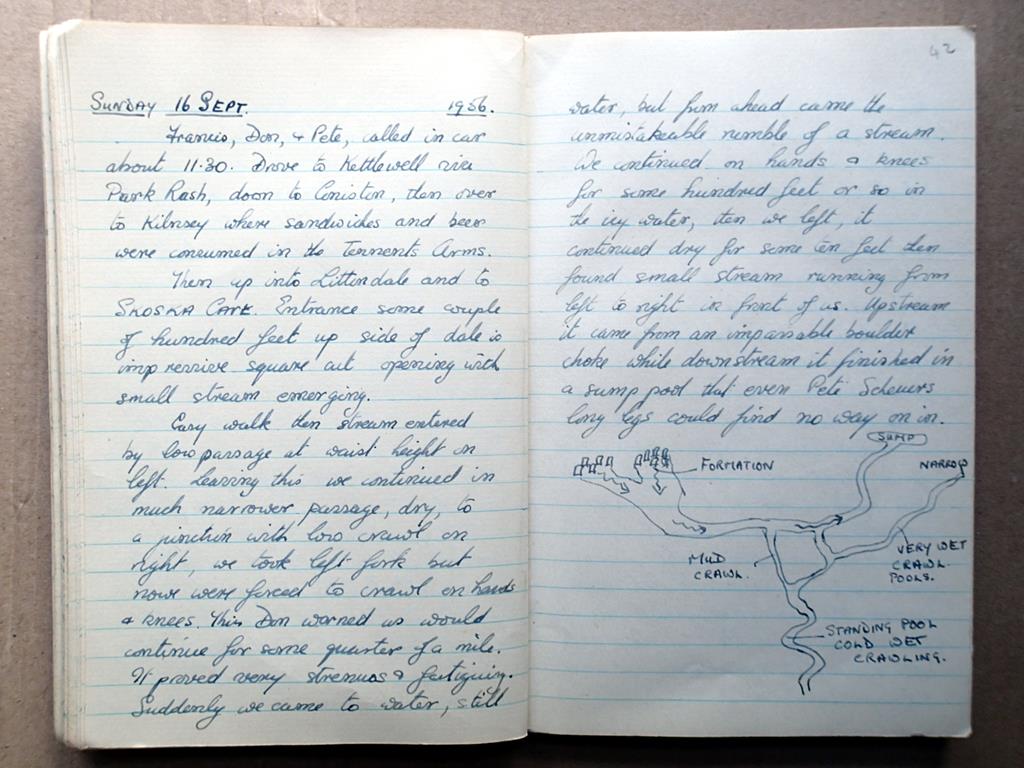 SUNDAY 16 SEPT. 1956.
Francis, Don, & Pete, called in car
about 11·30. Drove to Kettlewell via
Park Rash, down to Coniston, then over
to Kilnsey where sandwiches and beer
were consumed in the Tennents Arms.
Then up into Littindale and to
SKOSKA CAVE. Entrance some couple
of hundred feet up side of dale is
impressive square cut opening with
small stream emerging.
Easy walk then stream entered
by low passage at waist height on
left. Leaving this we continued in
much narrower passage, dry, to
a junction with low crawl on
right, we took left fork but
now were forced to crawl on hands
& knees. This Don warned us would
continue for some quarter of a mile.
It proved very strenuos & fatiguing.
Suddenly we came to water, still
42
water, but from ahead came the
unmistakeable rumble of a stream.
We continued on hands & knees
for some hundred feet or so in
the icy water, then we left, it
continued dry for some ten feet then
found small stream running from
left to right in front of us. Upstream
it came from an impassable boulder
choke while downstream it finished in
a sump pool that even Pete Scheuers
long legs could find no way on in.
SUMP
FORMATION
NARROW
MUD
CRAWL.
VERY WET
CRAWL
POOLS.
STANDING POOL
COLD WET
CRAWLING.